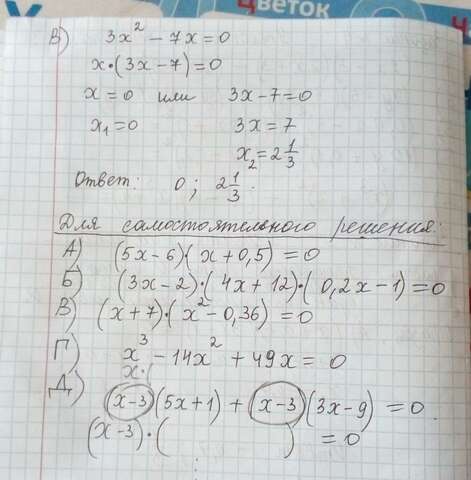 Цветок
В) 3x² − 7x = 0
x·(3x − 7) = 0
x = 0 или 3x − 7 = 0
x₁ = 0 3x = 7
x₂ = 2 1/3
Ответ: 0; 2 1/3.
Для самостоятельного решения:
А) (5x − 6)·(x + 0,5) = 0
Б) (3x − 2)·(4x + 12)·(0,2x − 1) = 0
В) (x + 7)·(x² − 0,36) = 0
Г) x³ − 14x² + 49x = 0
x·(
Д) (x − 3)(5x + 1) + (x − 3)(3x − 9) = 0.
(x − 3)·( ) = 0